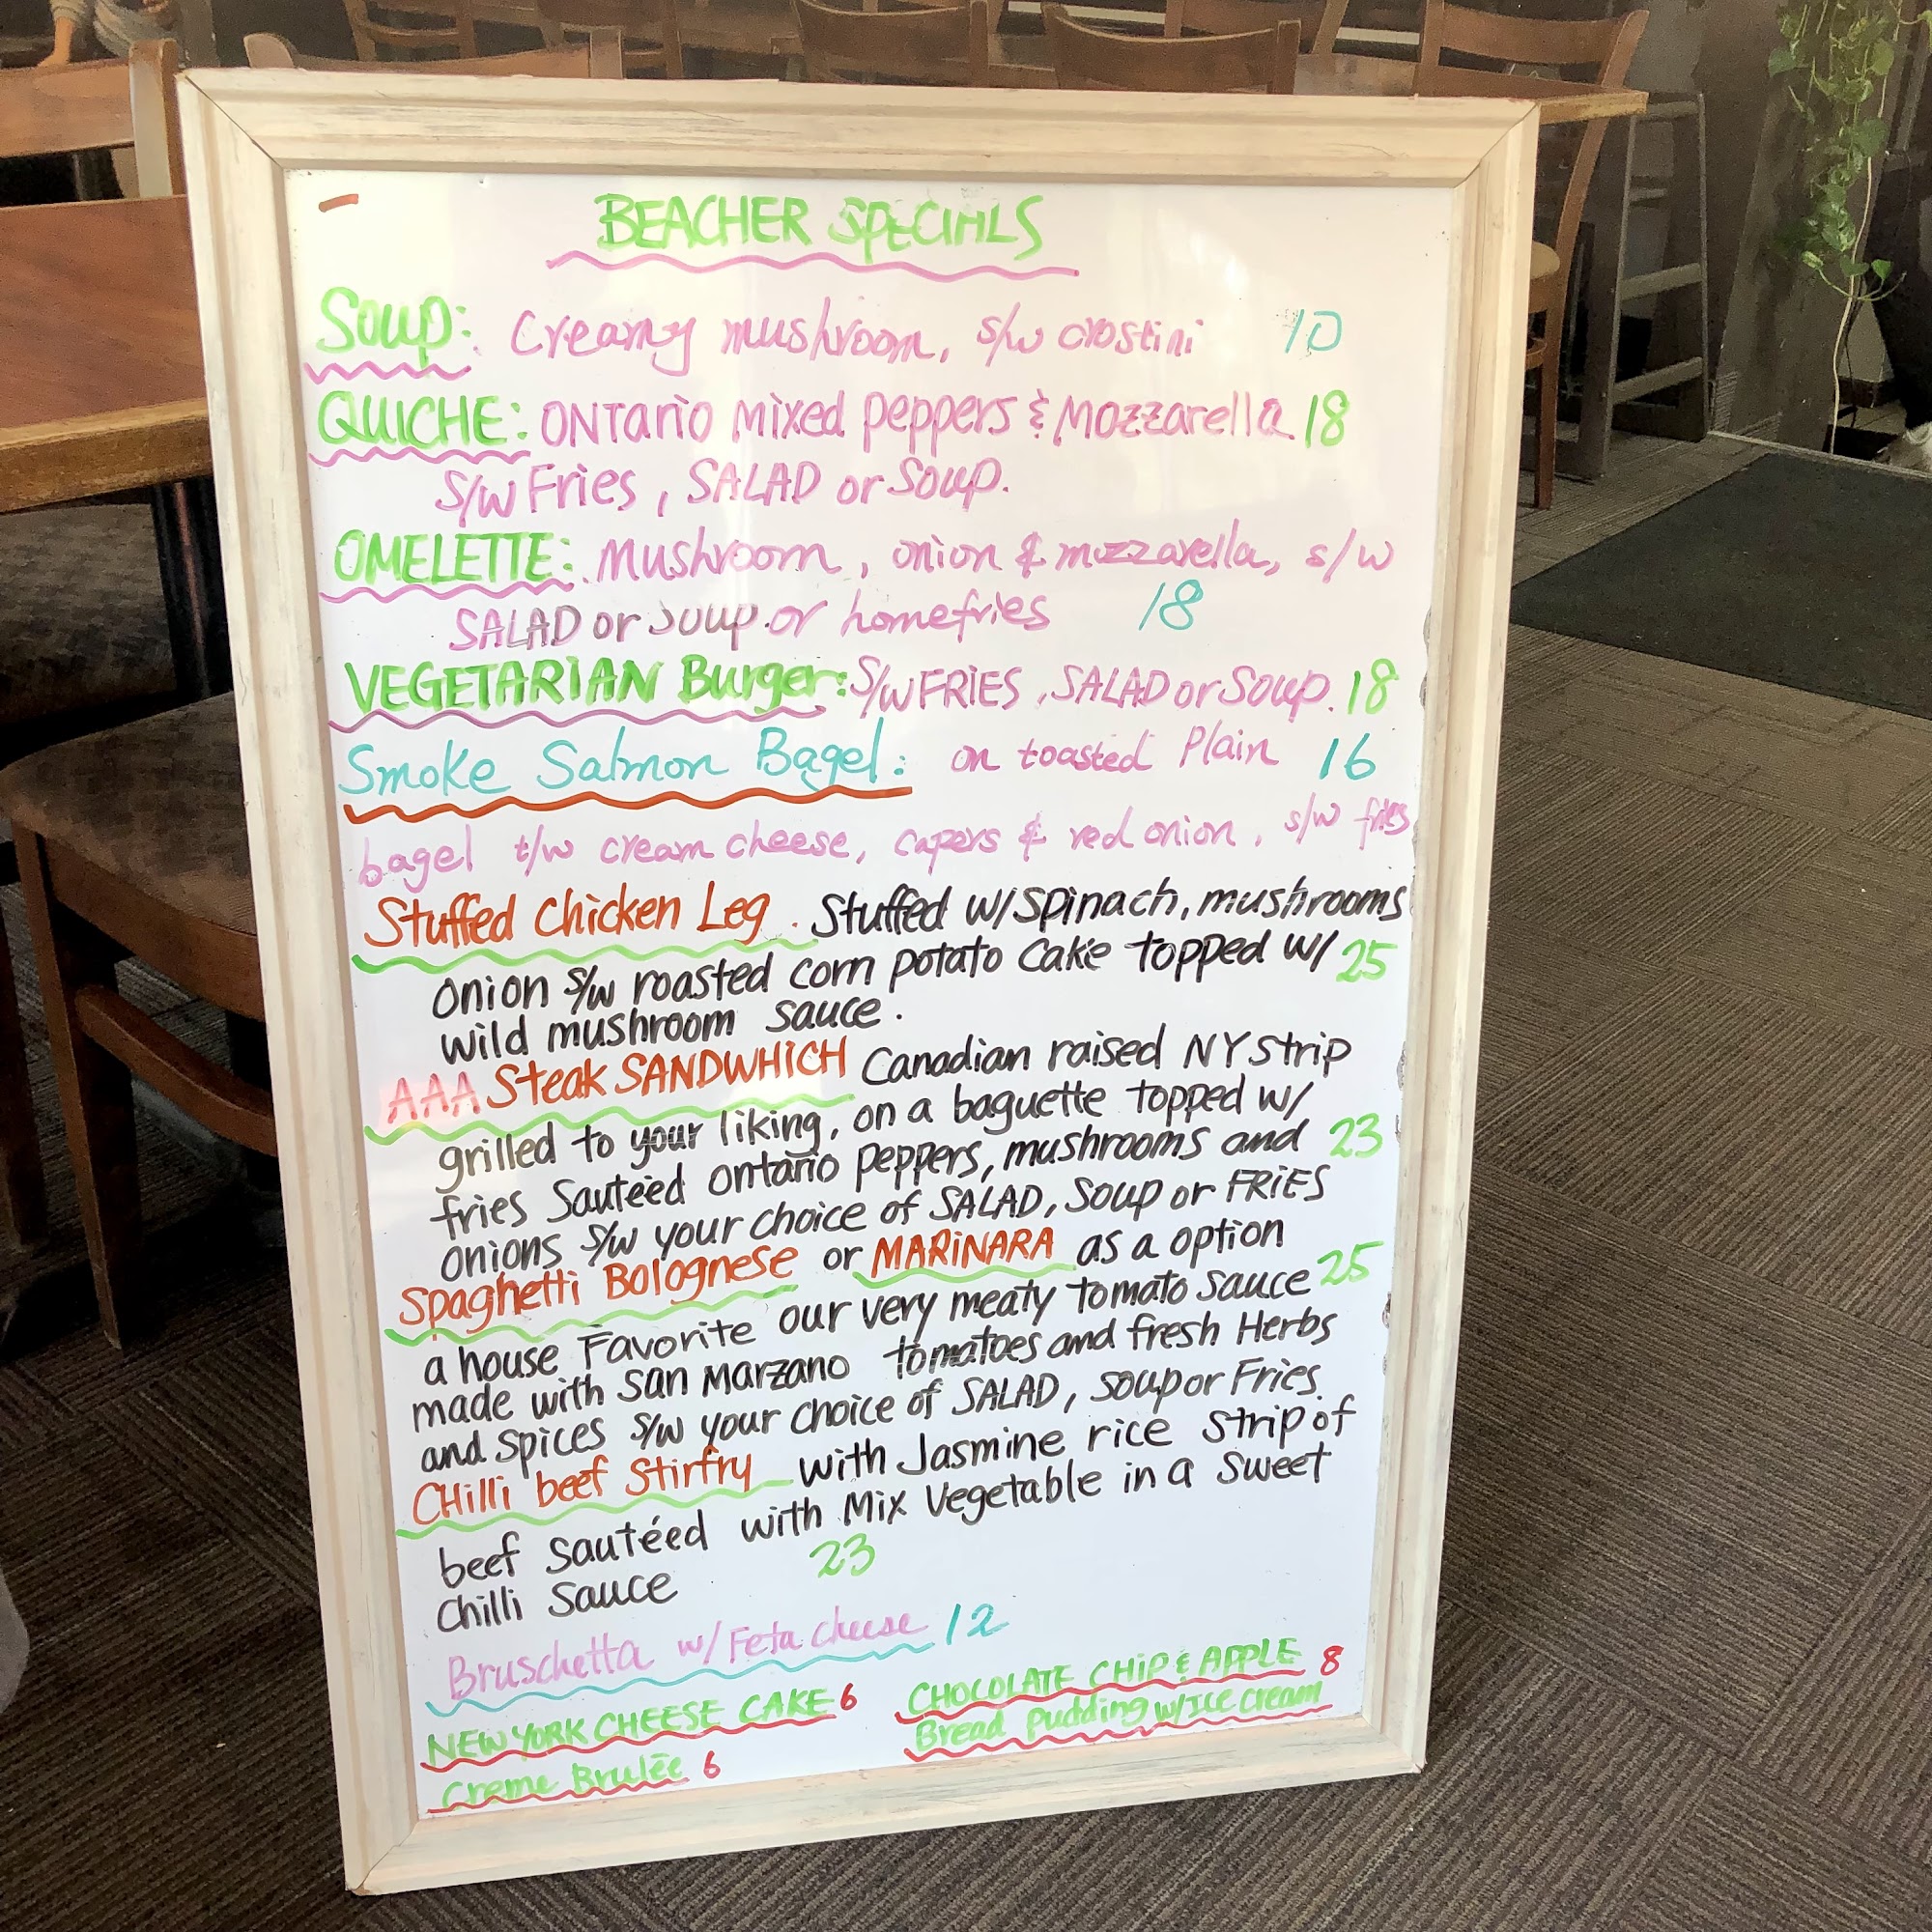 BEACHER SPECIALS
Soup: Creamy mushroom, s/w crostini 10
QUICHE: ONTARIO MIXED peppers & Mozzarella 18
S/W Fries, SALAD or Soup.
OMELETTE: Mushroom, onion & mozzarella, s/w
SALAD or Soup or homefries 18
VEGETARIAN Burger: S/W FRIES, SALAD or Soup. 18
Smoke Salmon Bagel: on toasted Plain 16
bagel t/w cream cheese, capers & red onion, s/w fries
Stuffed Chicken Leg. Stuffed w/ spinach, mushrooms
onion s/w roasted corn potato cake topped w/ 25
wild mushroom sauce.
AAA Steak SANDWHICH Canadian raised NY strip
grilled to your liking, on a baguette topped w/
fries Sautéed ontario peppers, mushrooms and 23
onions s/w your choice of SALAD, Soup or FRIES
Spaghetti Bolognese or MARINARA as a option
a house Favorite our very meaty tomato sauce 25
made with San Marzano tomatoes and fresh Herbs
and spices s/w your choice of SALAD, soup or Fries.
CHilli beef Stirfry with Jasmine rice Strip of
beef Sautéed with Mix Vegetable in a Sweet
Chilli Sauce 23
Bruschetta w/ Feta cheese 12
NEW YORK CHEESE CAKE 6
CHOCOLATE CHIP & APPLE 8
Bread pudding w/ Ice cream
Creme Brulēe 6